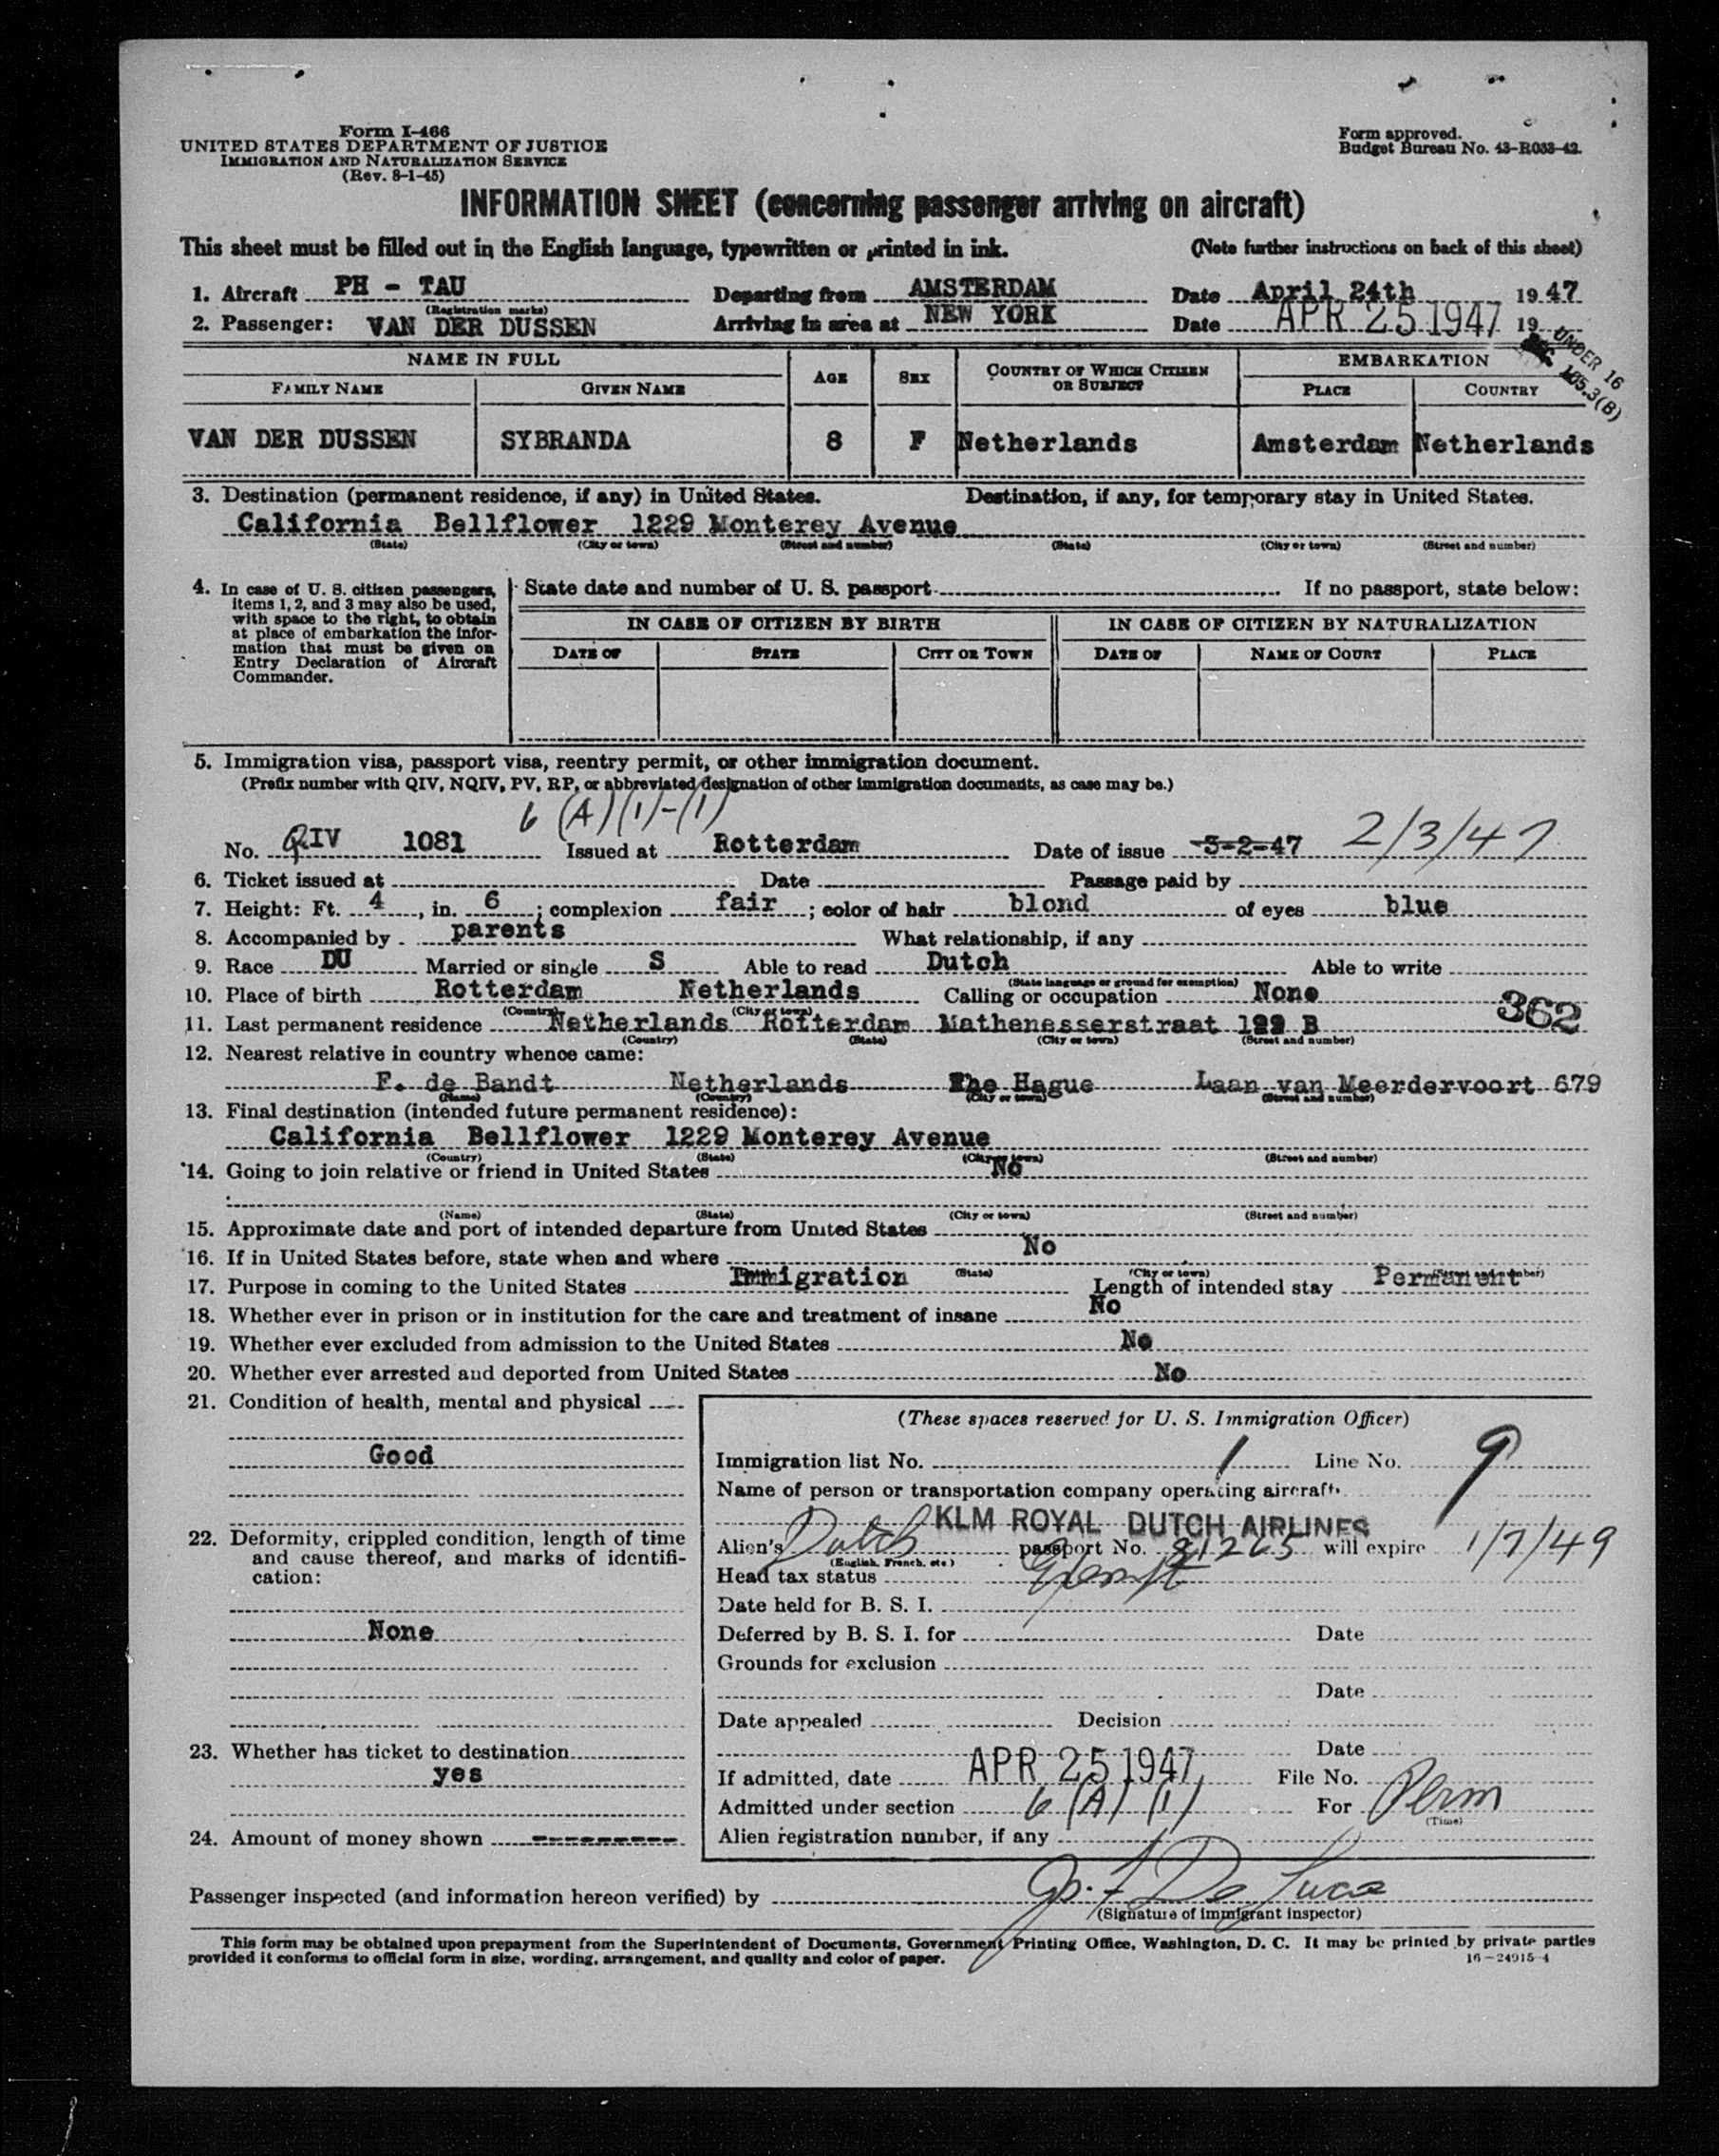 Form I-466
UNITED STATES DEPARTMENT OF JUSTICE
IMMIGRATION AND NATURALIZATION SERVICE
(Rev. 8-1-45)
Form approved.
Budget Bureau No. 43-R033-42.
INFORMATION SHEET (concerning passenger arriving on aircraft)
This sheet must be filled out in the English language, typewritten or printed in ink. (Note further instructions on back of this sheet)
1. Aircraft PH - TAU Departing from AMSTERDAM Date April 24th 1947
(Registration marks)
2. Passenger: VAN DER DUSSEN Arriving in area at NEW YORK Date APR 25 1947 19
UNDER 16
SEC 105.3(B)
NAME IN FULL AGE SEX COUNTRY OF WHICH CITIZEN OR SUBJECT EMBARKATION
FAMILY NAME GIVEN NAME PLACE COUNTRY
VAN DER DUSSEN SYBRANDA 8 F Netherlands Amsterdam Netherlands
3. Destination (permanent residence, if any) in United States. Destination, if any, for temporary stay in United States.
California Bellflower 1229 Monterey Avenue
(State) (City or town) (Street and number) (State) (City or town) (Street and number)
4. In case of U. S. citizen passengers,
items 1, 2, and 3 may also be used,
with space to the right, to obtain
at place of embarkation the infor-
mation that must be given on
Entry Declaration of Aircraft
Commander.
State date and number of U. S. passport If no passport, state below:
IN CASE OF CITIZEN BY BIRTH IN CASE OF CITIZEN BY NATURALIZATION
DATE OF STATE CITY OR TOWN DATE OF NAME OF COURT PLACE
5. Immigration visa, passport visa, reentry permit, or other immigration document.
(Prefix number with QIV, NQIV, PV, RP, or abbreviated designation of other immigration documents, as case may be.)
6 (A) (1)-(1)
No. QIV 1081 Issued at Rotterdam Date of issue 3-2-47 2/3/47
6. Ticket issued at Date Passage paid by
7. Height: Ft. 4, in. 6; complexion fair; color of hair blond of eyes blue
8. Accompanied by parents What relationship, if any
9. Race DU Married or single S Able to read Dutch Able to write
(State language or ground for exemption)
10. Place of birth Rotterdam Netherlands Calling or occupation None
(Country) (City or town)
362
11. Last permanent residence Netherlands Rotterdam Mathenesserstraat 122 B
(Country) (State) (City or town) (Street and number)
12. Nearest relative in country whence came:
F. de Bandt Netherlands The Hague Laan van Meerdervoort 679
(Name) (Country) (City or town) (Street and number)
13. Final destination (intended future permanent residence):
California Bellflower 1229 Monterey Avenue
(Country) (State) (City or town) (Street and number)
14. Going to join relative or friend in United States No
(Name) (State) (City or town) (Street and number)
15. Approximate date and port of intended departure from United States
16. If in United States before, state when and where No
(State) (City or town) (Street and number)
17. Purpose in coming to the United States Immigration Length of intended stay Permanent
18. Whether ever in prison or in institution for the care and treatment of insane No
19. Whether ever excluded from admission to the United States No
20. Whether ever arrested and deported from United States No
21. Condition of health, mental and physical
Good
22. Deformity, crippled condition, length of time
and cause thereof, and marks of identifi-
cation:
None
23. Whether has ticket to destination
yes
24. Amount of money shown ----------
(These spaces reserved for U. S. Immigration Officer)
Immigration list No. 1 Line No. 9
Name of person or transportation company operating aircraft
KLM ROYAL DUTCH AIRLINES
Alien's Dutch passport No. 21265 will expire 1/7/49
(English, French, etc.)
Head tax status Exempt
Date held for B. S. I.
Deferred by B. S. I. for Date
Grounds for exclusion
Date
Date appealed Decision
Date
If admitted, date APR 25 1947 File No.
Admitted under section 6 (A) (1) For Perm
(Time)
Alien registration number, if any
Passenger inspected (and information hereon verified) by De Luca
(Signature of immigrant inspector)
This form may be obtained upon prepayment from the Superintendent of Documents, Government Printing Office, Washington, D. C. It may be printed by private parties
provided it conforms to official form in size, wording, arrangement, and quality and color of paper. 16-24915-4